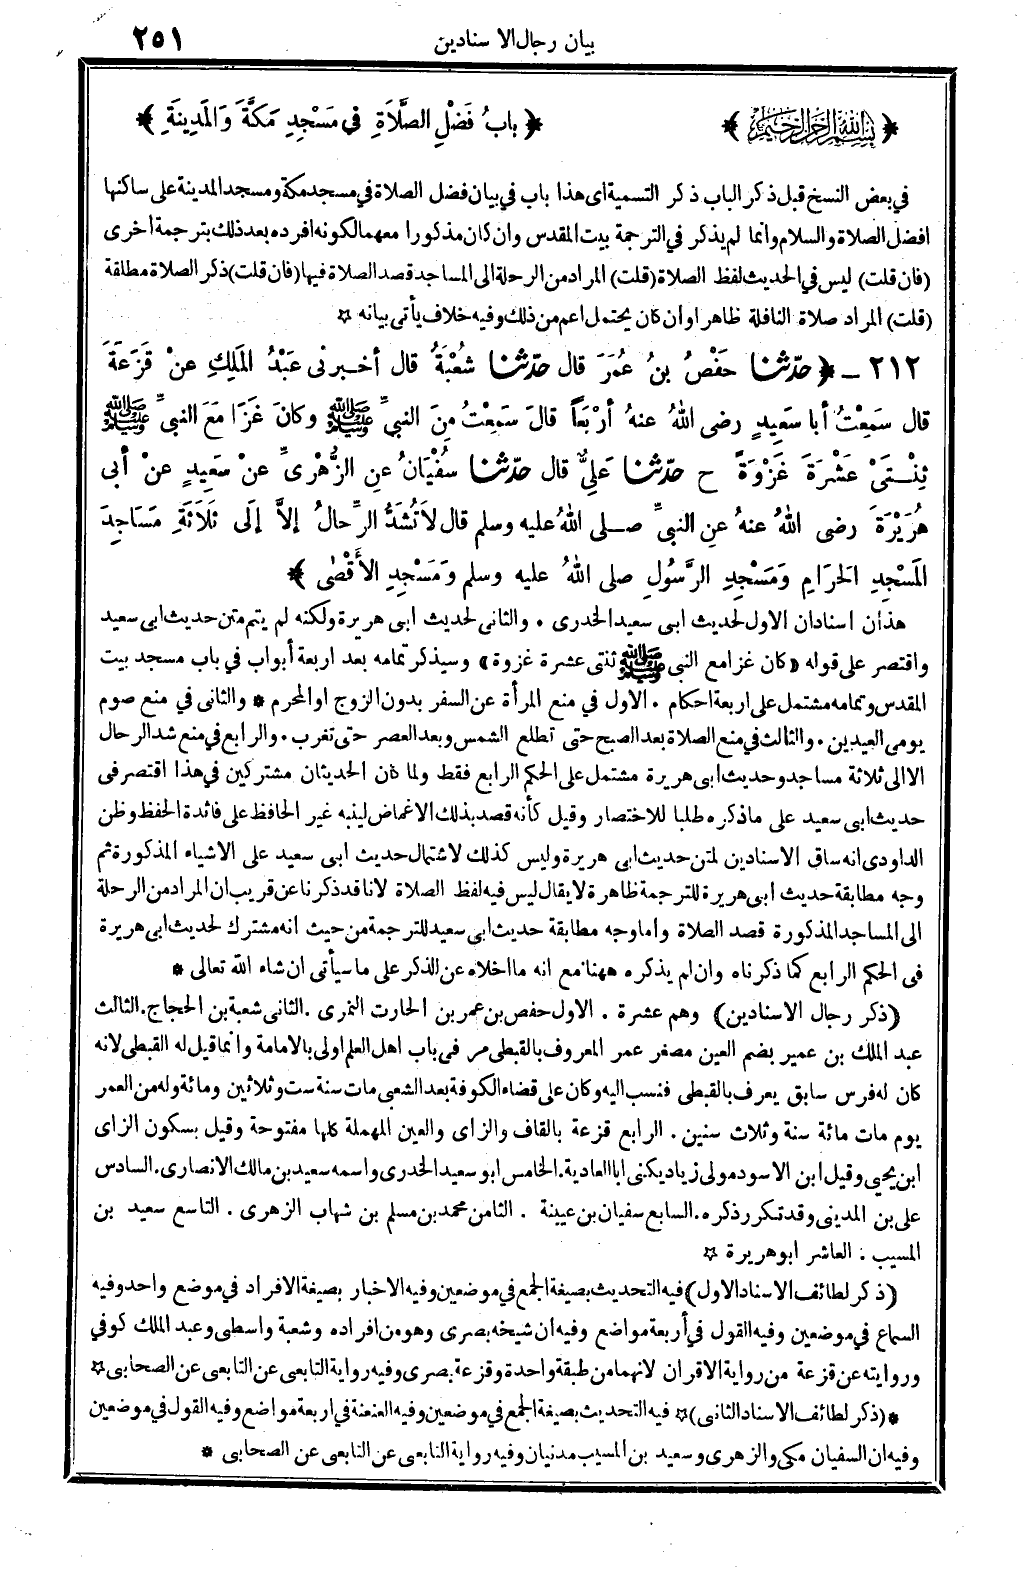 بيان رجال الاسنادين ٢٥١
﴿ بسم الله الرحمن الرحيم ﴾ ﴿ بابُ فَضْلِ الصَّلَاةِ فِي مَسْجِدِ مَكَّةَ وَالمَدِينَةِ ﴾
في بعض النسخ قبل ذكر الباب ذكر التسمية اى هذا باب في بيان فضل الصلاة في مسجد مكة ومسجد المدينة على ساكنها
افضل الصلاة والسلام وانما لم يذكر في الترجمة بيت المقدس وان كان مذكورا معهما لكونه افرده بعد ذلك بترجمة اخرى
(فان قلت) ليس في الحديث لفظ الصلاة (قلت) المراد من الرحلة الى المساجد قصد الصلاة فيها (فان قلت) ذكر الصلاة مطلقة
(قلت) المراد صلاة النافلة ظاهرا وان كان يحتمل اعم من ذلك وفيه خلاف يأتى بيانه ☆
٢١٢ ـ ﴿ حدّثنا حَفْصُ بنُ عُمَرَ قال حدّثنا شُعْبَةُ قال أخبرنى عَبْدُ المَلِكِ عنْ قَزَعَةَ
قال سَمِعْتُ أبا سَعِيدٍ رضى اللهُ عنهُ أرْبَعاً قالَ سَمِعْتُ مِنَ النبيِّ ﷺ وكانَ غَزَا مَعَ النبيِّ ﷺ
ثِنْتَيْ عَشْرَةَ غَزْوَةً ح حدّثنا عَلِيٌّ قال حدّثنا سُفْيَانُ عنِ الزُّهْرِىِّ عنْ سَعِيدٍ عنْ أبى
هُرَيْرَةَ رضى اللهُ عنهُ عنِ النبىِّ صلى اللهُ عليه وسلم قال لاَ تُشَدُّ الرِّحالُ إلاَّ إلَى ثَلَاثَةِ مَسَاجِدَ
المَسْجِدِ الحَرَامِ وَمَسْجِدِ الرَّسُولِ صلى اللهُ عليه وسلم وَمَسْجِدِ الأَقْصٰى ﴾
هذان اسنادان الاول لحديث ابى سعيد الخدرى . والثانى لحديث ابى هريرة ولكنه لم يتم متن حديث ابى سعيد
واقتصر على قوله «كان غزا مع النبى ﷺ ثنتى عشرة غزوة» وسيذكر تمامه بعد اربعة أبواب في باب مسجد بيت
المقدس وتمامه مشتمل على اربعة احكام . الاول في منع المرأة عن السفر بدون الزوج او المحرم * والثانى في منع صوم
يومى العيدين . والثالث في منع الصلاة بعد الصبح حتى تطلع الشمس وبعد العصر حتى تغرب . والرابع في منع شد الرحال
الا الى ثلاثة مساجد وحديث ابى هريرة مشتمل على الحكم الرابع فقط ولما كان الحديثان مشتركين في هذا اقتصر فى
حديث ابى سعيد على ما ذكره طلبا للاختصار وقيل كأنه قصد بذلك الاغماض لينبه غير الحافظ على فائدة الحفظ وظن
الداودى انه ساق الاسنادين لمتن حديث ابى هريرة وليس كذلك لاشتمال حديث ابى سعيد على الاشياء المذكورة ثم
وجه مطابقة حديث ابى هريرة للترجمة ظاهرة لا يقال ليس فيه لفظ الصلاة لانا قد ذكرنا عن قريب ان المراد من الرحلة
الى المساجد المذكورة قصد الصلاة واما وجه مطابقة حديث ابى سعيد للترجمة من حيث انه مشترك لحديث ابى هريرة
فى الحكم الرابع كما ذكرناه وان لم يذكره ههنا مع انه ما اخلاه عن الذكر على ما سيأتى ان شاء الله تعالى *
(ذكر رجال الاسنادين) وهم عشرة . الاول حفص بن عمر بن الحارث النمرى . الثانى شعبة بن الحجاج . الثالث
عبد الملك بن عمير بضم العين مصغر عمر المعروف بالقبطى مر في باب اهل العلم اولى بالامامة وانما قيل له القبطى لانه
كان له فرس سابق يعرف بالقبطى فنسب اليه وكان على قضاء الكوفة بعد الشعبى مات سنة ست وثلاثين ومائة وله من العمر
يوم مات مائة سنة وثلاث سنين . الرابع قزعة بالقاف والزاى والعين المهملة كلها مفتوحة وقيل بسكون الزاى
ابن يحيى وقيل ابن الاسود مولى زياد يكنى ابا العادية . الخامس ابو سعيد الخدرى واسمه سعيد بن مالك الانصارى . السادس
على بن المدينى وقد تكرر ذكره . السابع سفيان بن عيينة . الثامن محمد بن مسلم بن شهاب الزهرى . التاسع سعيد بن
المسيب . العاشر ابو هريرة ☆
(ذكر لطائف الاسناد الاول) فيه التحديث بصيغة الجمع في موضعين وفيه الاخبار بصيغة الافراد في موضع واحد وفيه
السماع في موضعين وفيه القول في أربعة مواضع وفيه ان شيخه بصرى وهو من افراده وشعبة واسطى وعبد الملك كوفي
وروايته عن قزعة من رواية الاقران لانهما من طبقة واحدة وقزعة بصرى وفيه رواية التابعى عن التابعى عن الصحابى ☆
*(ذكر لطائف الاسناد الثانى)☆ فيه التحديث بصيغة الجمع في موضعين وفيه العنعنة في اربعة مواضع وفيه القول في موضعين
وفيه ان السفيان مكى والزهرى وسعيد بن المسيب مدنيان وفيه رواية التابعى عن التابعى عن الصحابى *